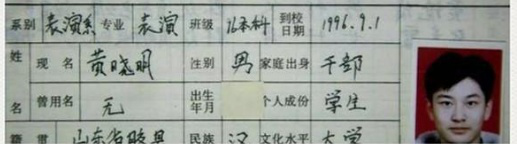 系别 表演系 专业 表演 班级 96本科 到校日期 1996.9.1
姓名 现名 黄晓明 性别 男 家庭出身 干部
曾用名 无 出生年月 个人成份 学生
籍贯 山东省 民族 汉 文化水平 大学